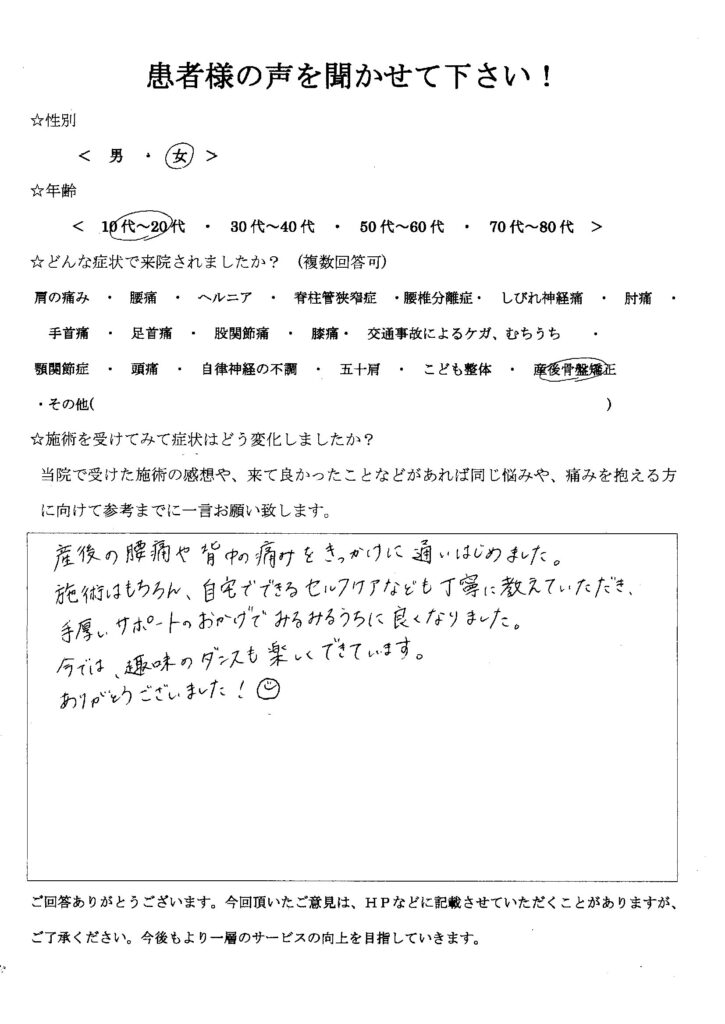 患者様の声を聞かせて下さい！
☆性別
＜ 男 ・ 女 ＞
☆年齢
＜ 10代～20代 ・ 30代～40代 ・ 50代～60代 ・ 70代～80代 ＞
☆どんな症状で来院されましたか？ (複数回答可)
肩の痛み ・ 腰痛 ・ ヘルニア ・ 脊柱管狭窄症 ・腰椎分離症・ しびれ神経痛 ・ 肘痛 ・
手首痛 ・ 足首痛 ・ 股関節痛 ・ 膝痛・ 交通事故によるケガ、むちうち ・
顎関節症 ・ 頭痛 ・ 自律神経の不調 ・ 五十肩 ・ こども整体 ・ 産後骨盤矯正
・その他( )
☆施術を受けてみて症状はどう変化しましたか？
当院で受けた施術の感想や、来て良かったことなどがあれば同じ悩みや、痛みを抱える方
に向けて参考までに一言お願い致します。
産後の腰痛や背中の痛みをきっかけに通いはじめました。
施術はもちろん、自宅でできるセルフケアなども丁寧に教えていただき、
手厚いサポートのおかげでみるみるうちに良くなりました。
今では、趣味のダンスも楽しくできています。
ありがとうございました！
ご回答ありがとうございます。今回頂いたご意見は、ＨＰなどに記載させていただくことがありますが、
ご了承ください。今後もより一層のサービスの向上を目指していきます。